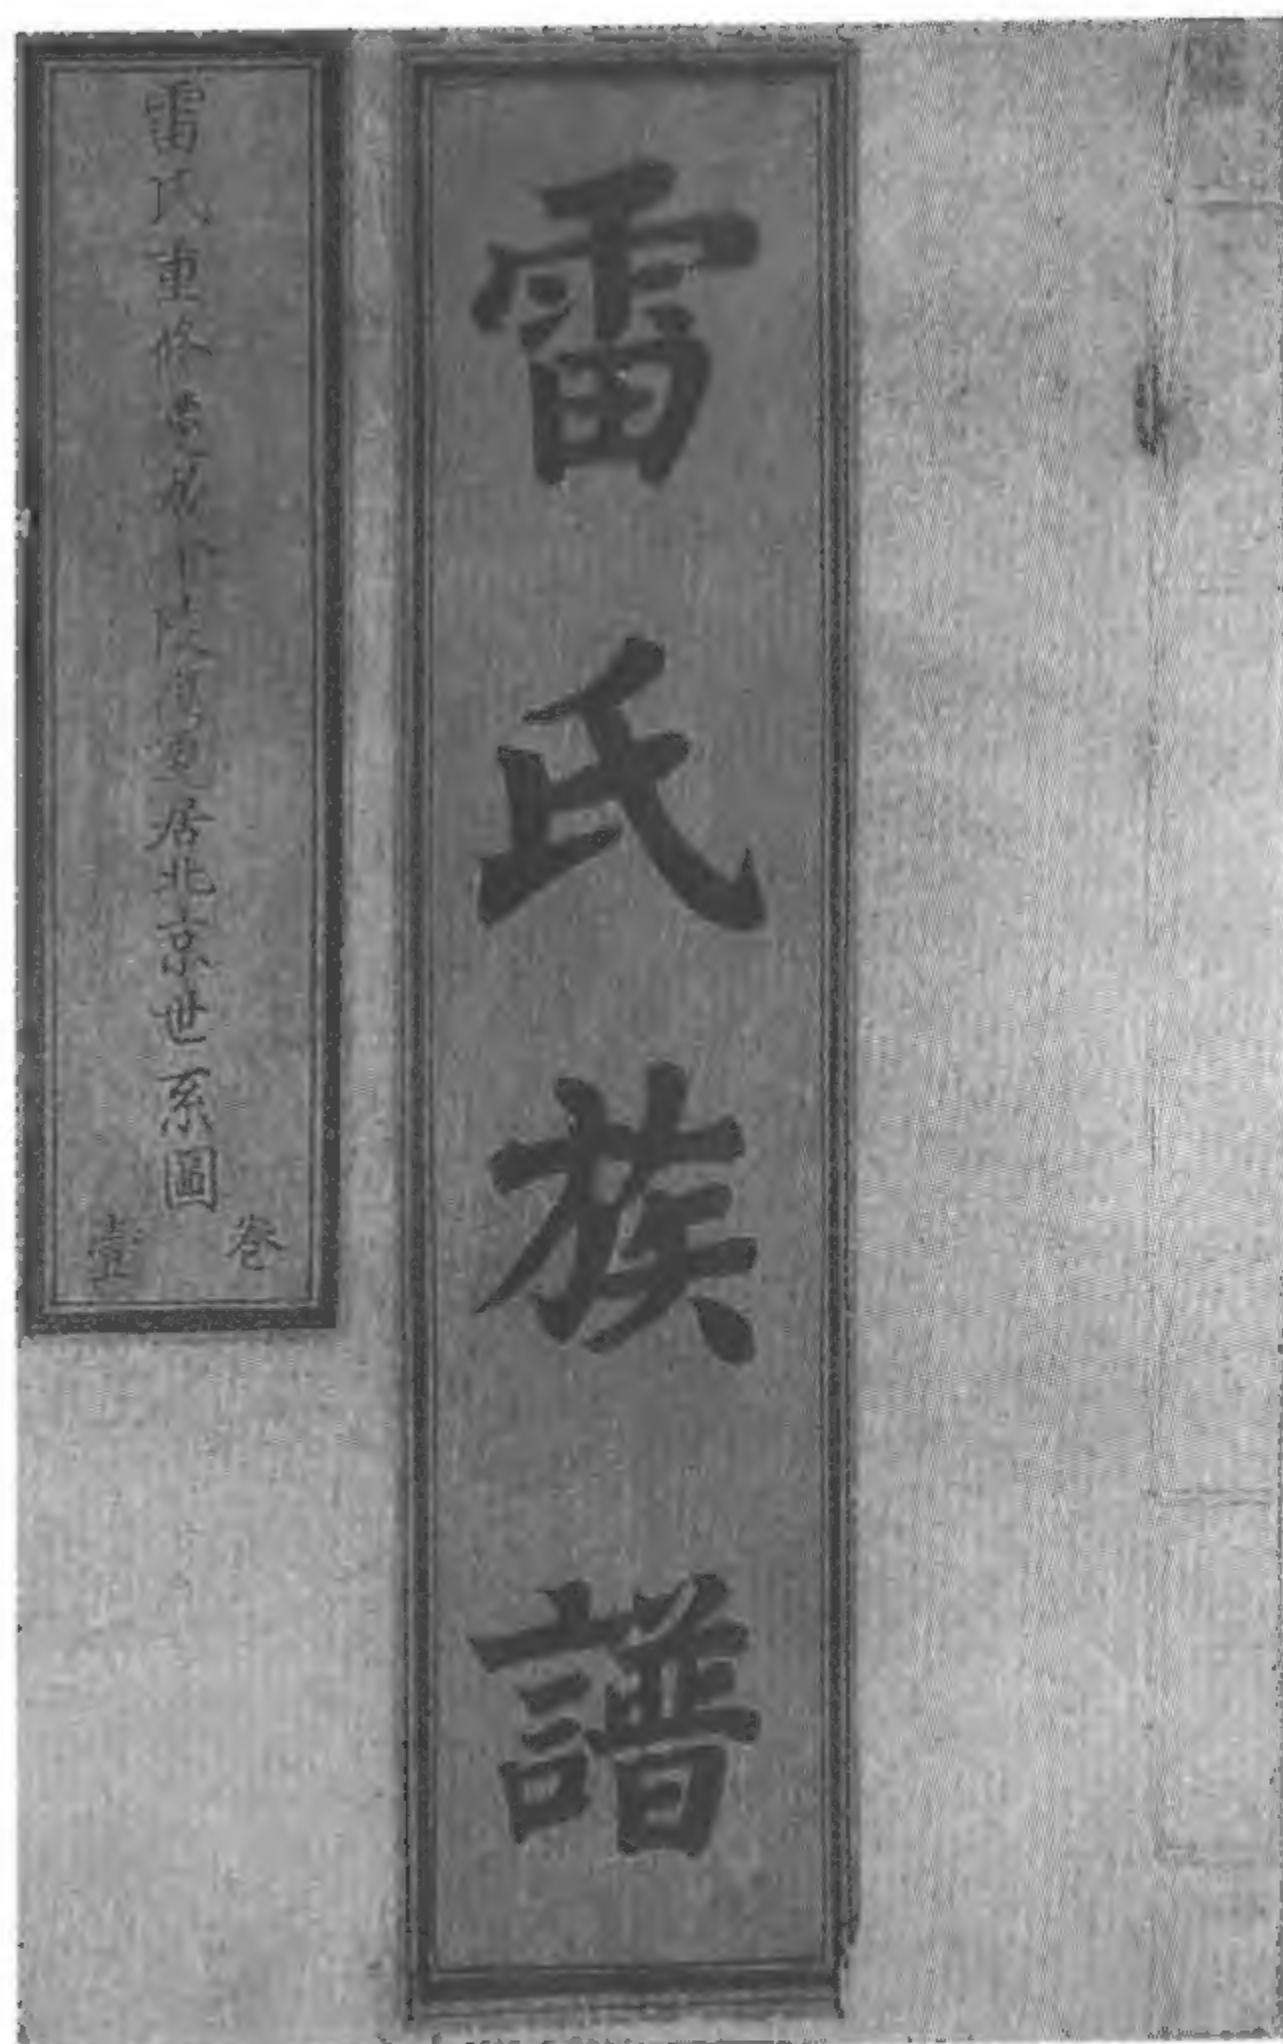 雷氏族譜
雷氏重修居北京世系圖
卷壹